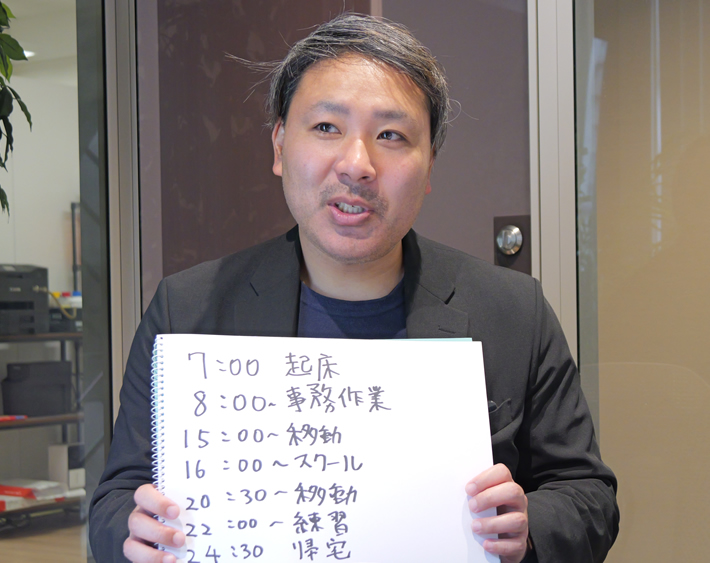 7:00 起床
8:00~ 事務作業
15:00~ 移動
16:00~ スクール
20:30~ 移動
22:00~ 練習
24:30 帰宅